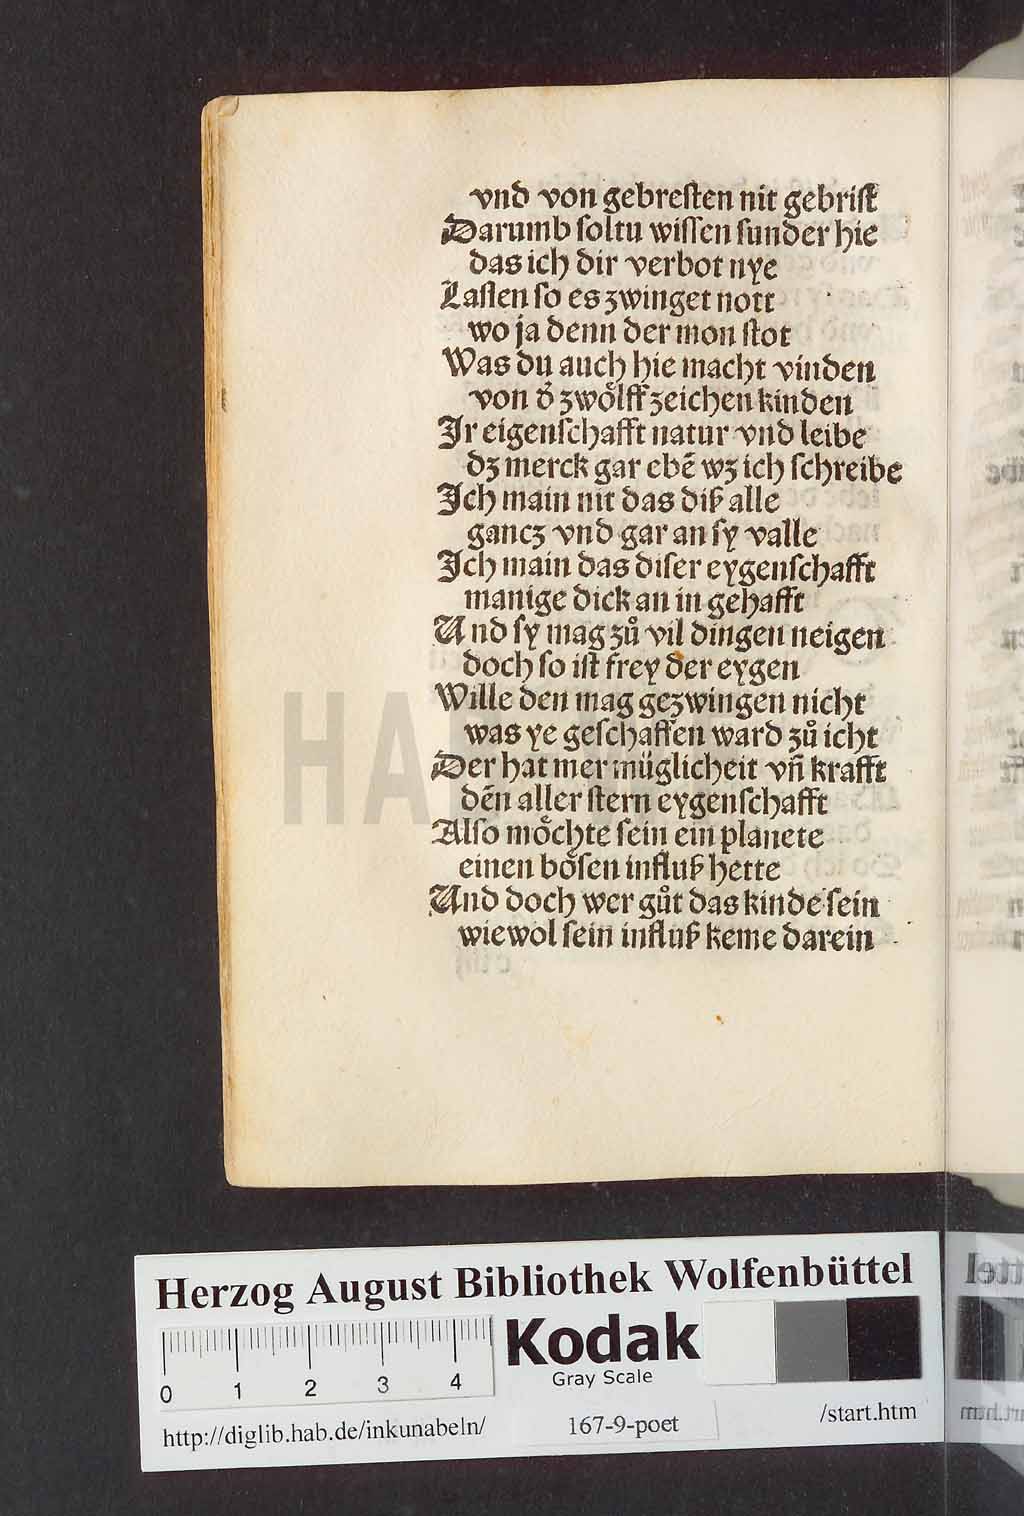 vnd von gebresten nit gebrist
Darumb soltu wissen sunder hie
das ich dir verbot nye
Lassen so es zwinget nott
wo ja denn der mon stot
Was du auch hie macht vinden
von d̓ zwoͤlff zeichen kinden
Ir eigenschafft natur vnd leibe
dz merck gar ebē wz ich schreibe
Ich main nit das diß alle
gancz vnd gar an sy valle
Ich main das diser eygenschafft
manige dick an in gehafft
Und sy mag zuͦ vil dingen neigen
doch so ist frey der eygen
Wille den mag gezwingen nicht
was ye geschaffen ward zuͦ icht
Der hat mer müglicheit vn̄ krafft
dēn aller stern eygenschafft
Also moͤchte sein ein planete
einen boͤsen influß hette
Und doch wer guͦt das kinde sein
wiewol sein influß keme darein
HAB
Herzog August Bibliothek Wolfenbüttel
Kodak
Gray Scale
0 1 2 3 4
http://diglib.hab.de/inkunabeln/ 167-9-poet /start.htm